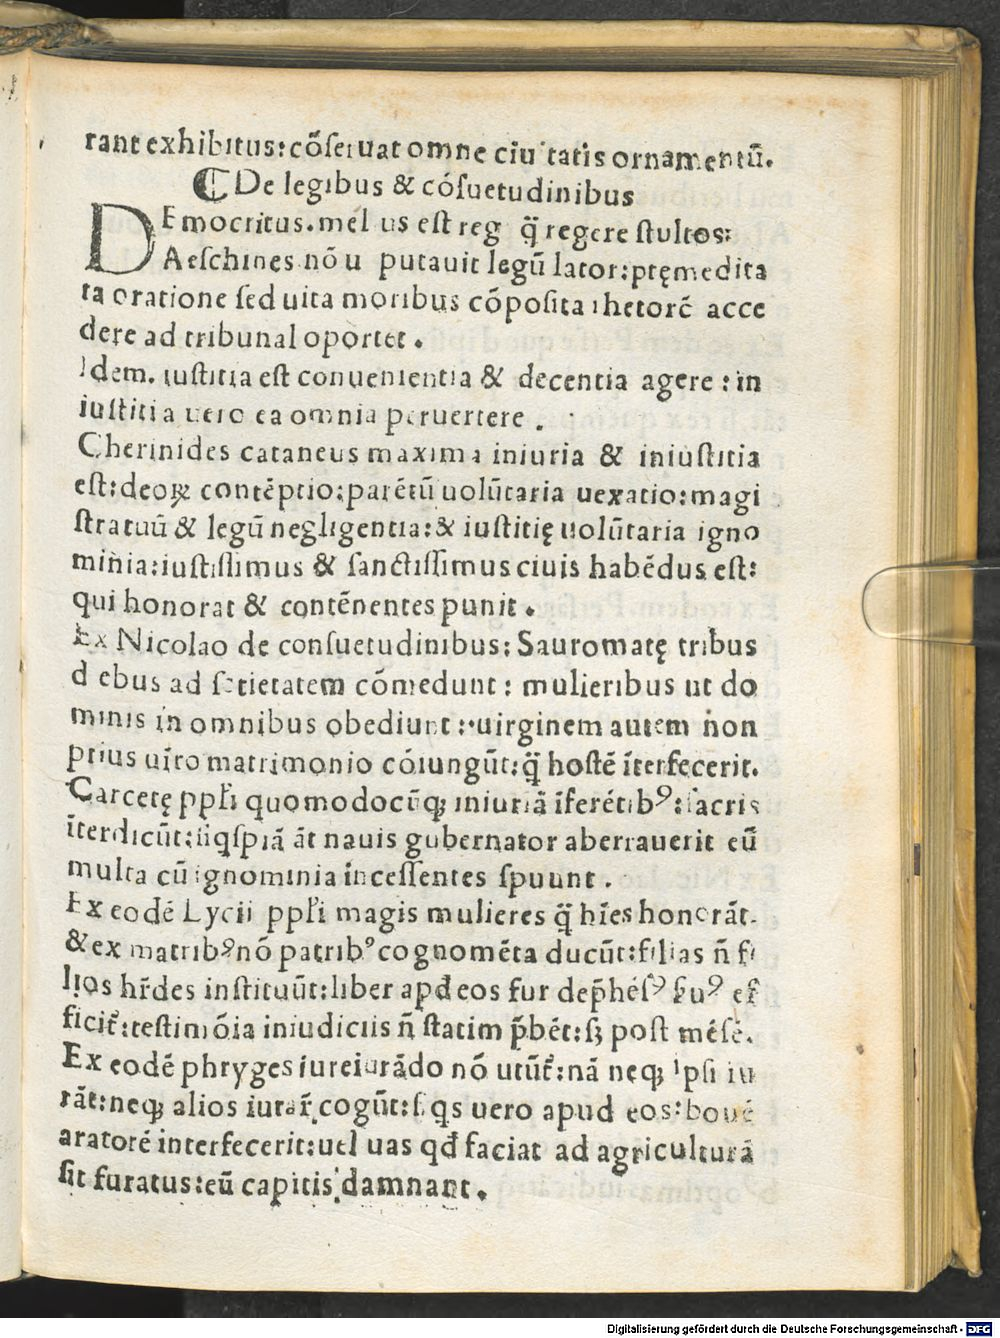 rant exhibitus:cõſeruat omne ciuitatis ornamentũ.
De legibus & cõſuetudinibus
DEmocritus.melius eſt regi q̃ regere ſtultos:
Aeſchines nõ u putauit legũ lator:pręmedita
ta oratione ſed uita moribus cõpoſita rhetorẽ acce
dere ad tribunal oportet.
Idem. iuſtitia eſt conuenientia & decentia agere:in
iuſtitia uero ea omnia peruertere.
Cherinides cataneus maxima iniuria & iniuſtitia
eſt:deoꝝ contẽptio:parẽtũ uolũtaria uexatio:magi
ſtratuũ & legũ negligentia:& iuſtitię uolũtaria igno
minia:iuſtiſſimus & ſanctiſſimus ciuis habẽdus eſt:
qui honorat & contẽnentes punit.
Ex Nicolao de conſuetudinibus:Sauromatę tribus
diebus ad ſatietatem cõmedunt:mulieribus ut do
minis in omnibus obediunt:uirginem autem non
prius uiro matrimonio cõiungũt:q̃ hoſtẽ ĩterfecerit.
Carcetę ppl'i quomodocũq; iniuriã ĩferẽtibꝰ:ſacris
ĩterdicũt:ſiqſpiã ãt nauis gubernator aberrauerit eũ
multa cũ ignominia inceſſentes ſpuunt.
Ex eodẽ Lycii ppl'i magis mulieres q̃ hr̃es honorãt.
& ex matribꝰ nõ patribꝰ cognomẽta ducũt:filias ñ fi
lios hr̃des inſtituũt:liber apđ eos fur dep̃hẽſꝰ ſeruꝰ ef
ficit̃:teſtimõia iniudiciis ñ ſtatim p̃bẽt:ſꝫ poſt mẽſẽ.
Ex eodẽ phryges iureiurãdo nõ utũt̃:nã neq; ipſi iu
rãt:neq; alios iurar̃ cogũt:ſi qs uero apud eos:bouẽ
aratorẽ interfecerit:uel uas qđ faciat ad agriculturã
ſit furatus:eũ capitis damnant.
Digitalisierung gefördert durch die Deutsche Forschungsgemeinschaft - DFG